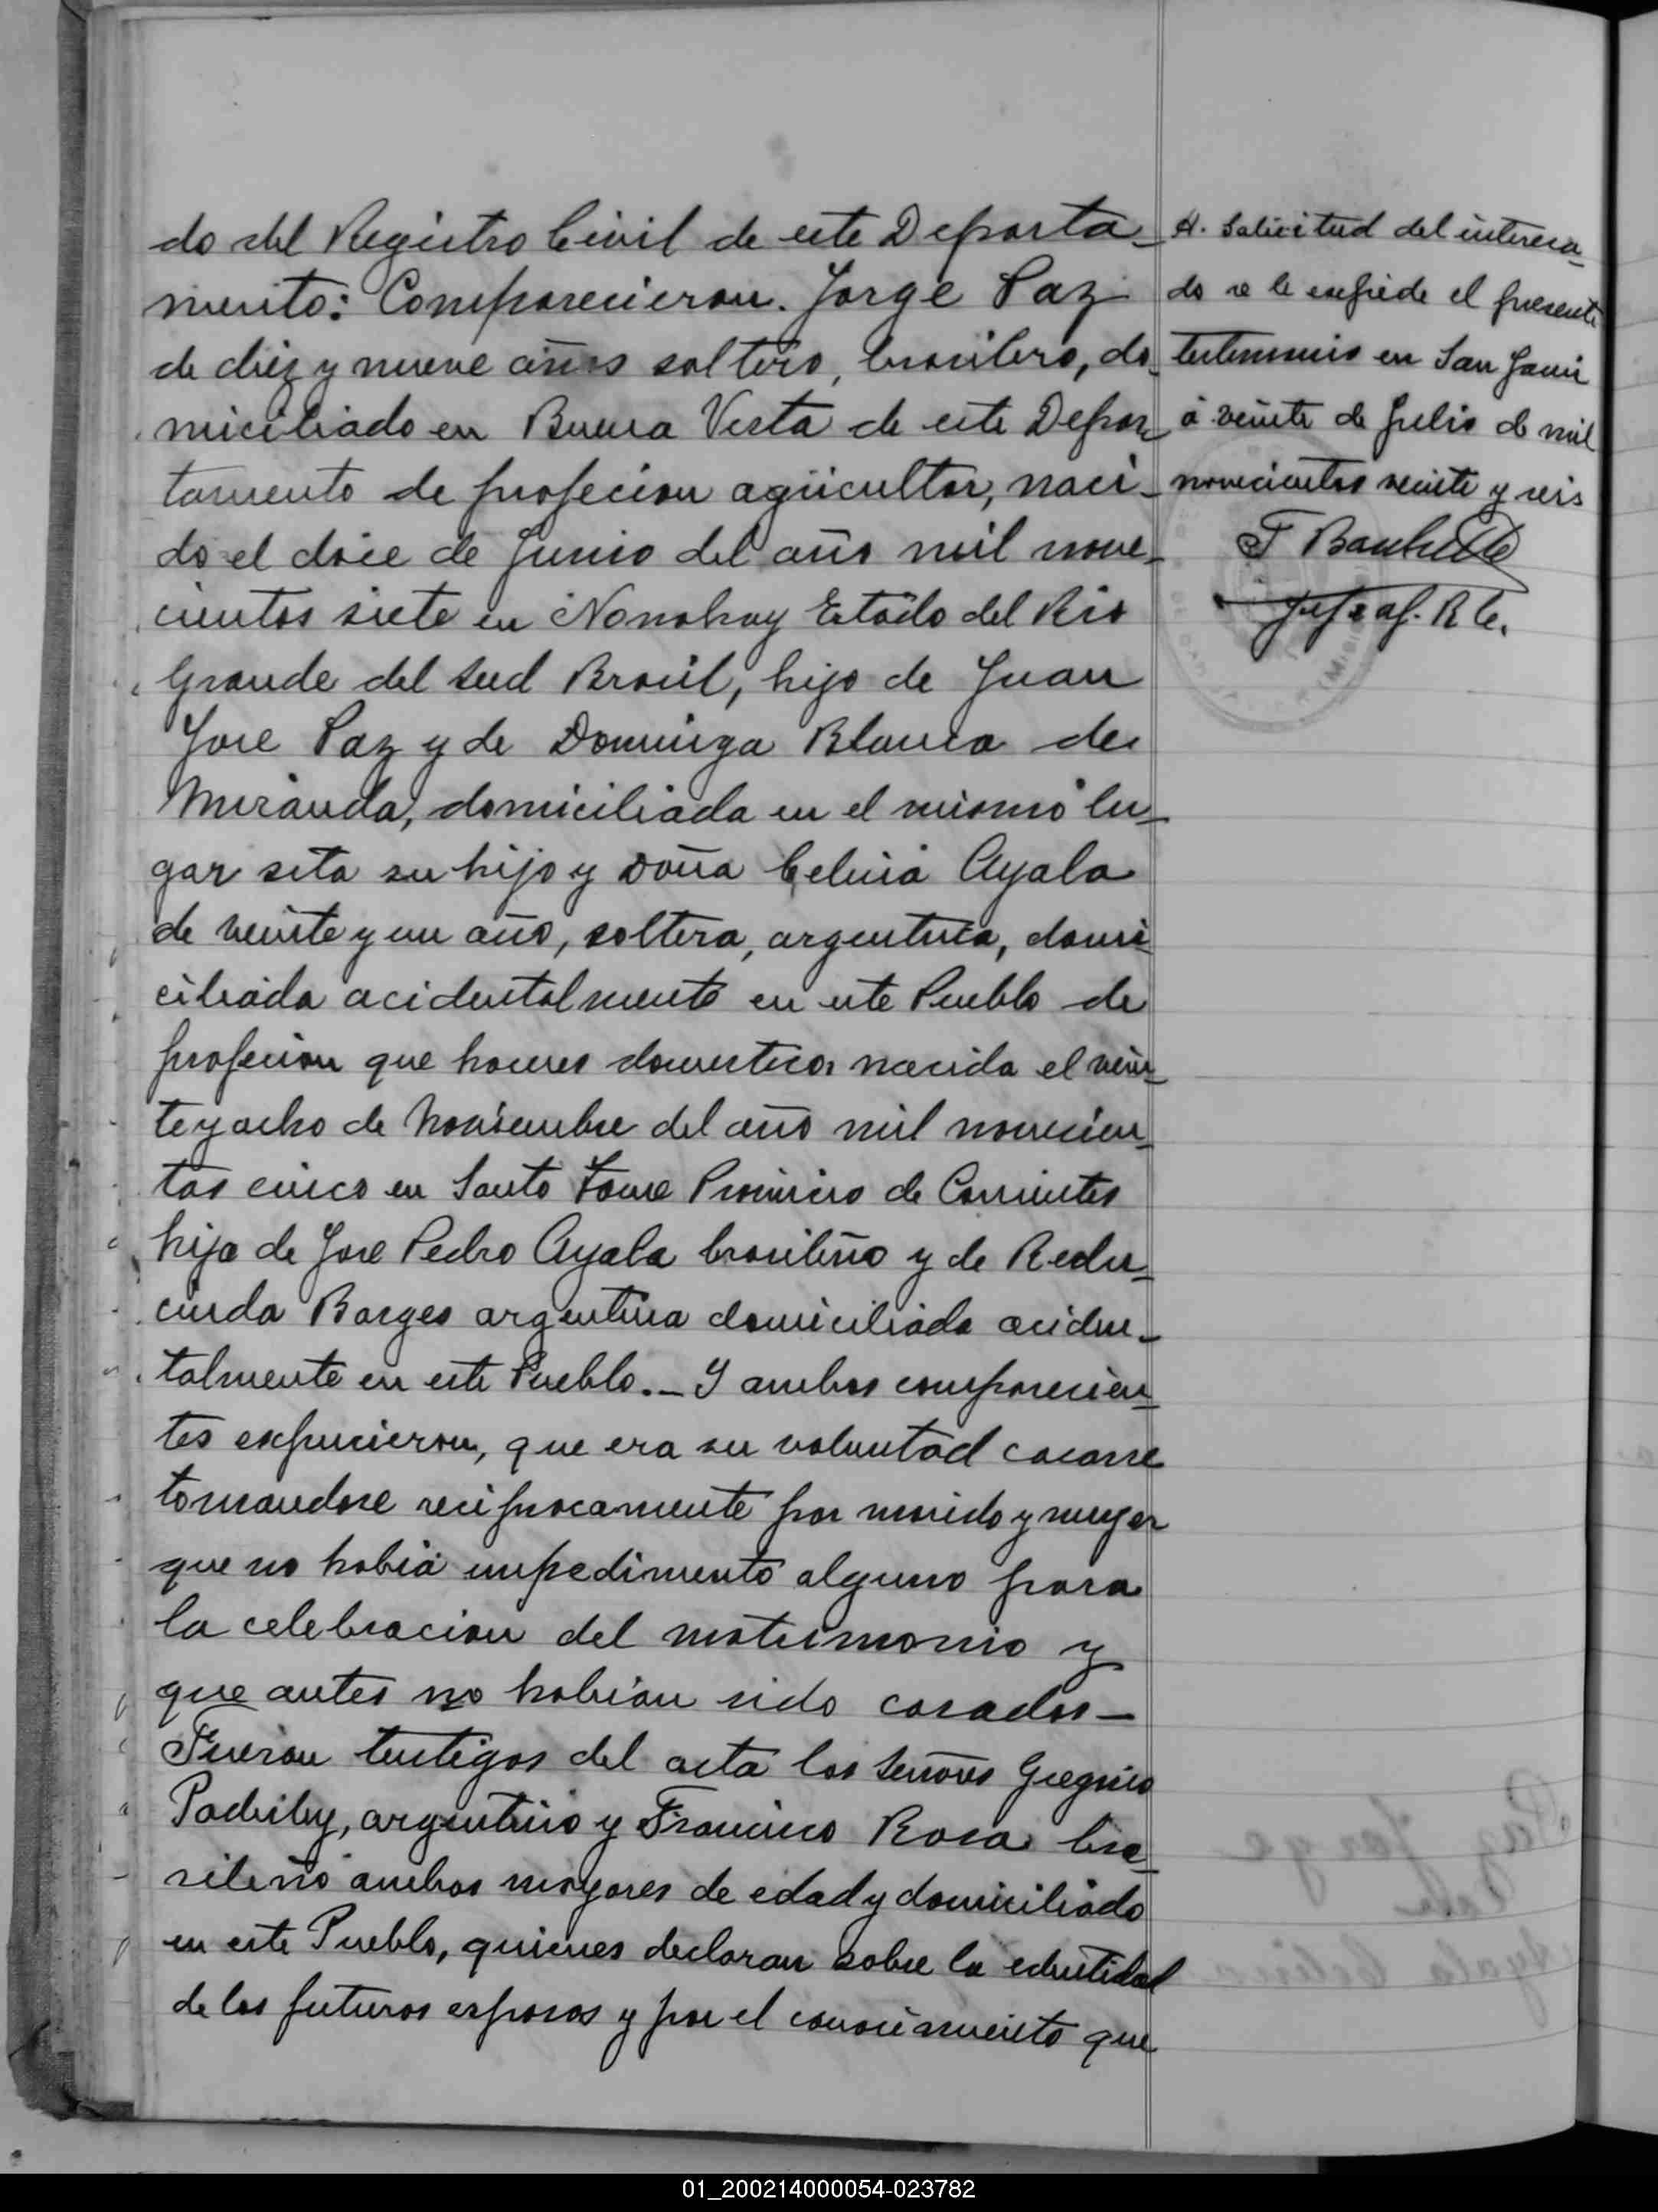 do del Registro Civil de este Departa-
mento: Comparecieron. Jorge Paz
de diez y nueve años soltero, brasilero, do-
miciliado en Buena Vista de este Depar-
tamento de profecion agricultor, naci-
do el doce de Junio del año mil nove-
cientos siete en Nonohay Estado del Rio
Grande del Sud Brasil, hijo de Juan
Jose Paz y de Dominga Blanca de
Miranda, domiciliada en el mismo lu-
gar sita su hijo y Doña Celina Ayala
de veinte y un año, soltera, argentina, domi-
ciliada acidentalmente en este Pueblo de
profecion que haceres domestica nacida el vein-
te y ocho de Noviembre del año mil novecien-
tos cinco en Santo Tome Provincia de Corrientes
hija de Jose Pedro Ayala brasileño y de Redu-
cinda Borges argentina domiciliada aciden-
talmente en este Pueblo._ Y ambos comparecien-
tes expucieron, que era su voluntad casarse
tomandose reciprocamente por marido y muger
que no habia impedimento alguno para
la celebracion del matrimonio y
que antes no habian sido casados_
Fueron testigos del acta los Señores Gregorio
argentino y Francisco Rosa bra-
sileño ambos mayores de edad y domiciliado
en este Pueblo, quienes declaran sobre la edentidad
de los futuros esposos y por el conocimiento que
A. Solicitud del interesa-
do se le expide el presente
testimonio en San Javier
á veinte de Julio de mil
novecientos veinte y seis
Jefe of. R C.
01_200214000054-023782